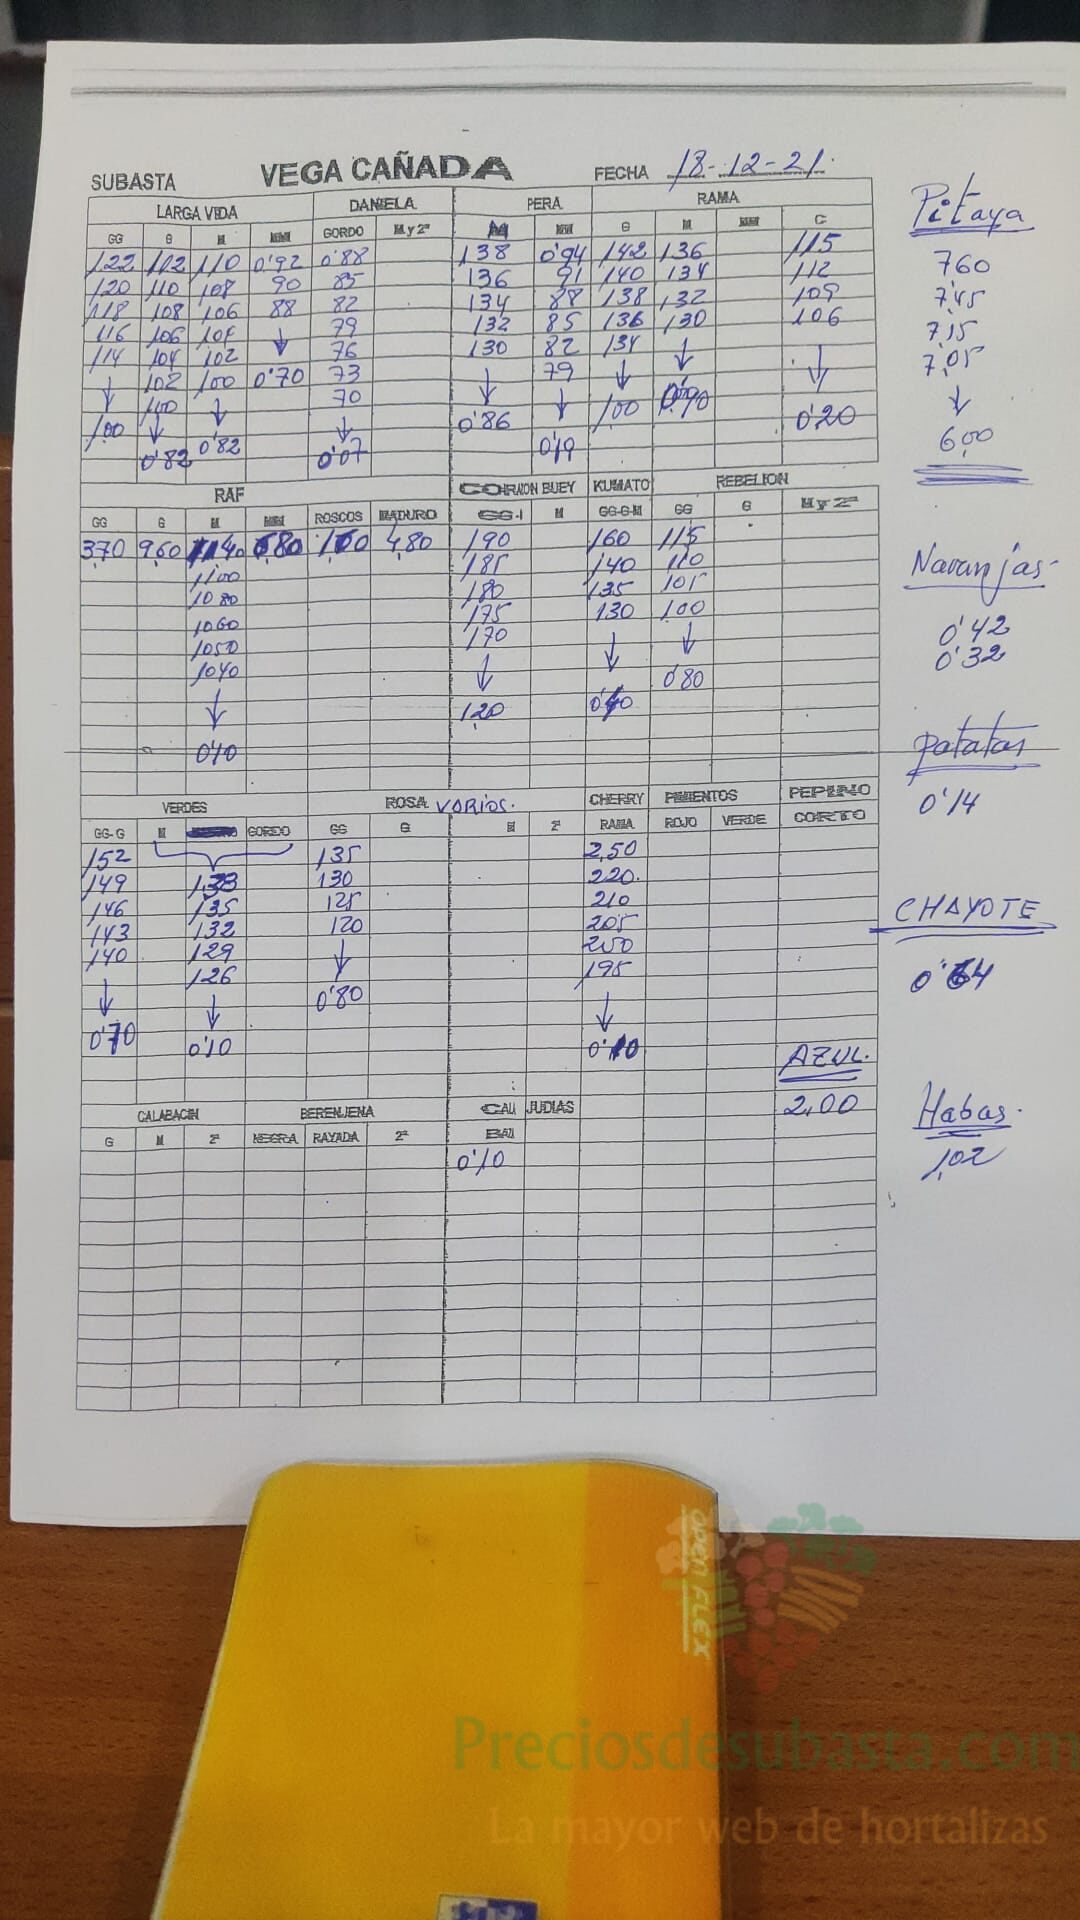 SUBASTA VEGA CAÑADA FECHA 18-12-21.
LARGA VIDA DANIELA PERA RAMA
GG G M MM GORDO M y 2ª MM G M MM C
122 112 110 0'92 0'88 138 0'94 142 136 115
120 110 108 90 85 136 91 140 134 112
118 108 106 88 82 134 88 138 132 109
116 106 104 ↓ 79 132 85 136 130 106
114 104 102 76 130 82 134 ↓ ↓
↓ 102 100 0'70 73 ↓ 79 ↓ 0'90
100 ↓ 70 ↓ 100 0'20
1,00 ↓ 0'82 ↓ 0'86 0'19
0'82 0'07
RAF CORAZON BUEY KUMATO REBELION
GG G M MM ROSCOS MADURO GG-1 M GG-G-M GG G M y 2ª
3,70 9,60 1140 680 4,80 190 160 115
1100 185 140 110
1080 180 135 105
1060 175 130 100
1050 170 ↓ ↓
1040 ↓ 0'80
↓ 1,20
0'10
VERDES ROSA VARIOS. CHERRY PIMIENTOS PEPINO
GG-G M GORDO GG G M 2ª RAMA ROJO VERDE CORTO
152 135 2,50
149 138 130 220.
146 135 125 210
143 132 120 205
140 129 ↓ 200
↓ 126 0'80 195
0'70 ↓ ↓
0'10 0'10
AZUL.
2,00
CALABACIN BERENJENA CALI JUDIAS
G M 2ª NEGRA RAYADA 2ª
0'10
Pitaya
760
7,45
7,15
7,05
↓
6,00
Naranjas-
0'42
0'32
patatas
0'14
CHAYOTE
0'64
Habas.
1,02
OPEN FLEX
Preciosdesubasta.com
La mayor web de hortalizas